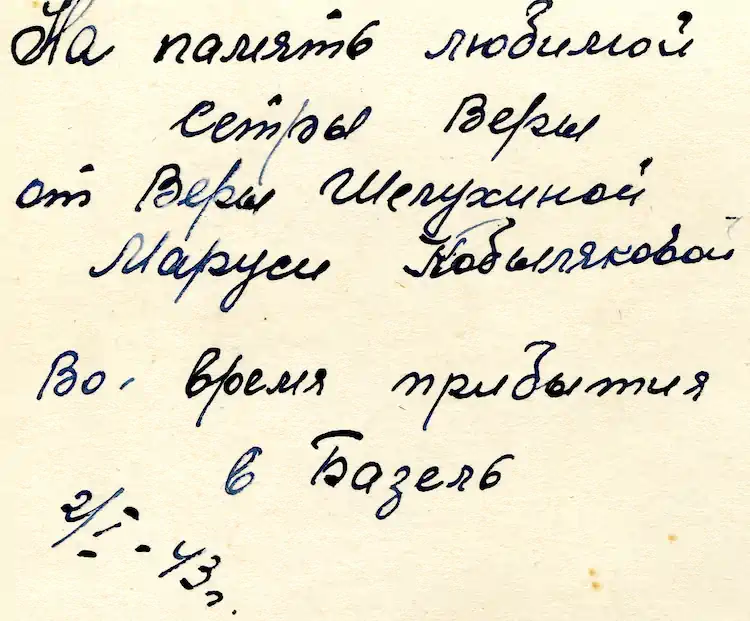 На память любимой
сетры Веры
от Веры Шелухиной
Маруси Кобыляковой
Во время прибытия
в Базель
2/I - 43 г.